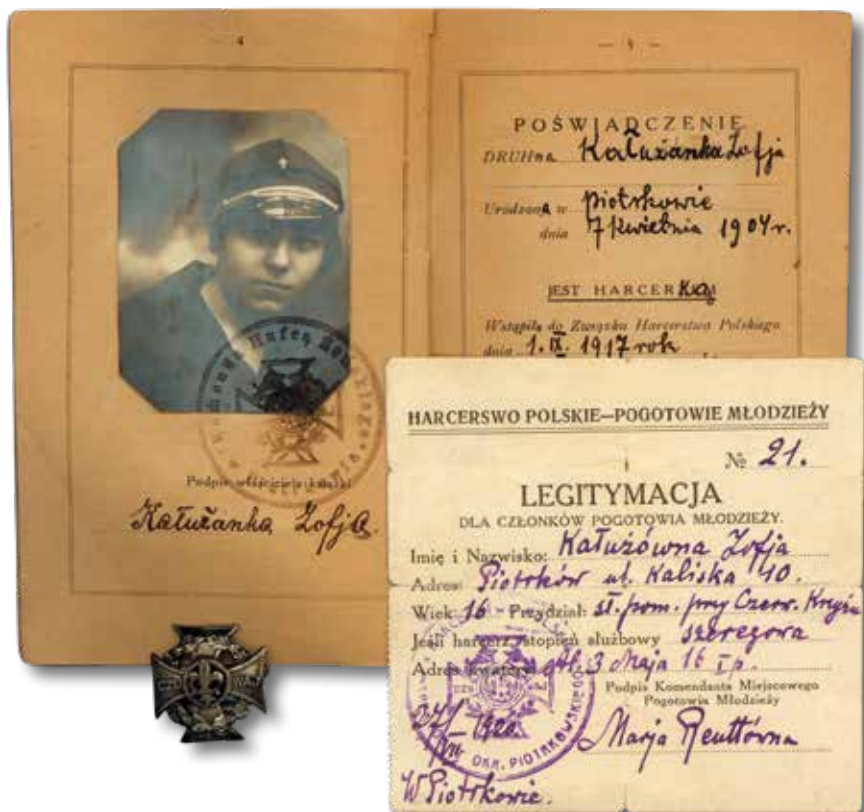 4
Podpis właściciela książki
Kałużanka Zofja
— 5 —
POŚWIADCZENIE
DRUHna Kałużanka Zofja
Urodzona w Piotrkowie
dnia 7 kwietnia 1904 r.
JEST HARCERKĄ
Wstąpiła do Związku Harcerstwa Polskiego
dnia 1.IX.1917 rok
CZU WAJ
HARCERSWO POLSKIE—POGOTOWIE MŁODZIEŻY
№ 21.
LEGITYMACJA
DLA CZŁONKÓW POGOTOWIA MŁODZIEŻY.
Imię i Nazwisko: Kałużówna Zofja
Adres: Piotrków ul. Kaliska 10.
Wiek 16 Przydział: st. pom. przy Czerw. Krzyżu
Jeśli harcerz, stopień służbowy szeregowa
Adres kwatery 3 Maja 16 I p.
Podpis Komendanta Miejscowego
Pogotowia Młodzieży
1920 Marja Reuttówna
W Piotrkowie.
OKR. PIOTRKOWSKIEGO